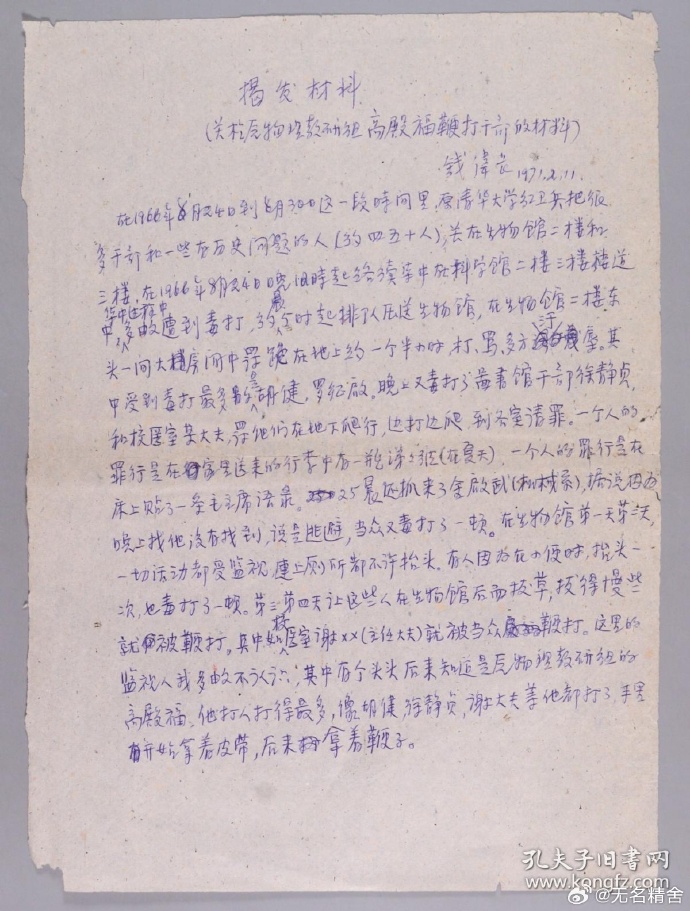 揭发材料
(关于原物理教研组高殿福鞭打干部的材料)
钱伟长 1971.2.11.
在1966年8月24日到8月30日这一段时间里，原清华大学红卫兵把很
多干部和一些有历史问题的人(约四五十人)，关在生物馆二楼和
三楼，在1966年8月24日晚 时起络续集中在科学馆二楼三楼楼道
集中过程中
中，多数遭到毒打， 时起排队压送生物馆，在生物馆二楼东
头一间大房间中罚跪在地上约一个半小时，打、骂、多方污辱。其
中受到毒打最多是胡健，罗征启。晚上又毒打了图书馆干部徐静贞，
和校医室某大夫，罚他们在地下爬行，边打边爬，到各室请罪。一个人的
罪行是在家里送来的行李中有一瓶 (在夏天)，一个人的罪行是在
床上贴了一条毛主席语录。25晨还抓来了金启武(机械系)，据说因为
晚上找他没有找到，说是逃避，当众又毒打了一顿。在生物馆第一天第二天，
一切活动都受监视，连上厕所都不许抬头。有人因为在小便时，抬头一
次，也毒打了一顿。第三第四天让这些人在生物馆后面拔草，拔得慢些
就被鞭打。其中如校医室谢××(主任大夫)就被当众鞭打。这里的
监视人我多数不认识，其中有个头头后来知道是原物理教研组的
高殿福，他打人打得最多，像胡健，徐静贞，谢大夫等他都打了，手里
开始拿着皮带，后来拿着鞭子。
孔夫子旧书网
www.kongfz.com
@无名精舍